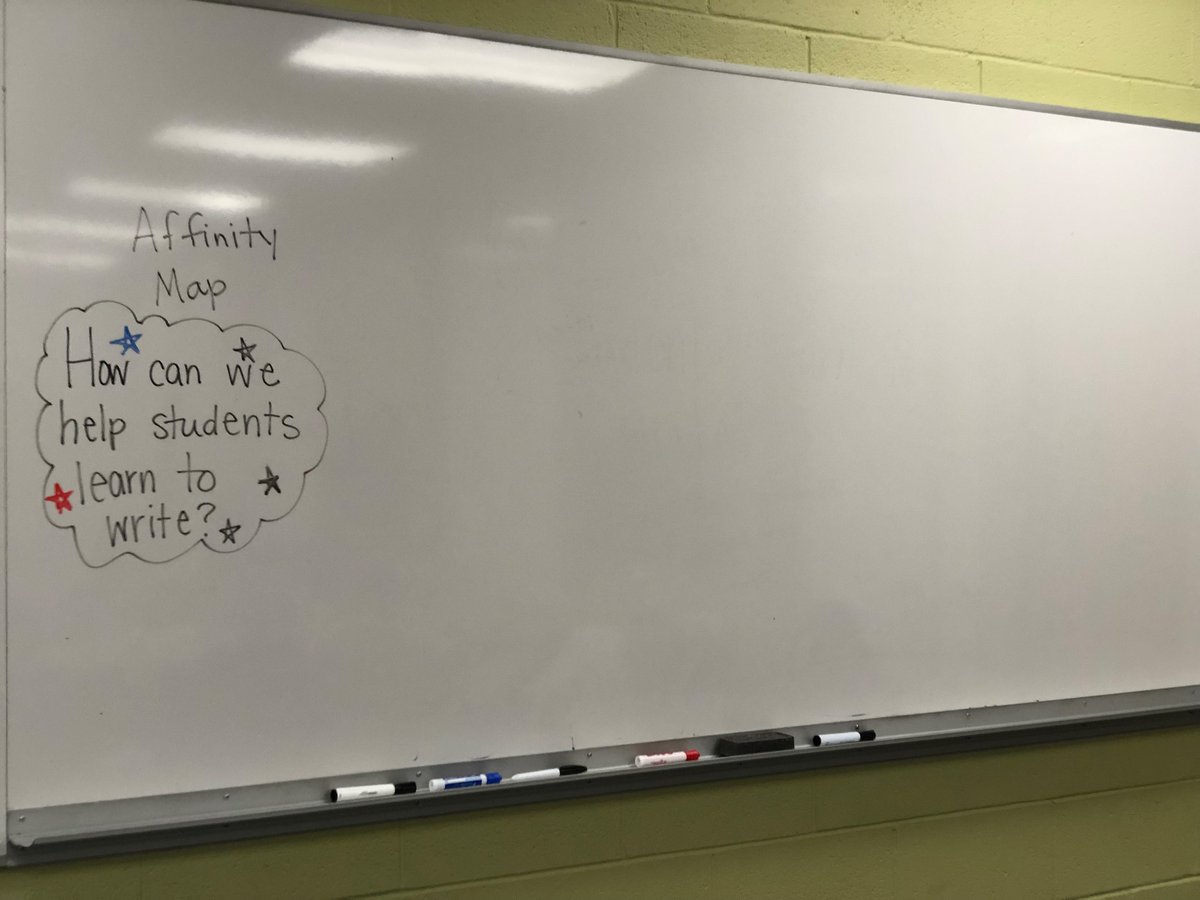 Affinity
Map
How can we
help students
learn to
write?